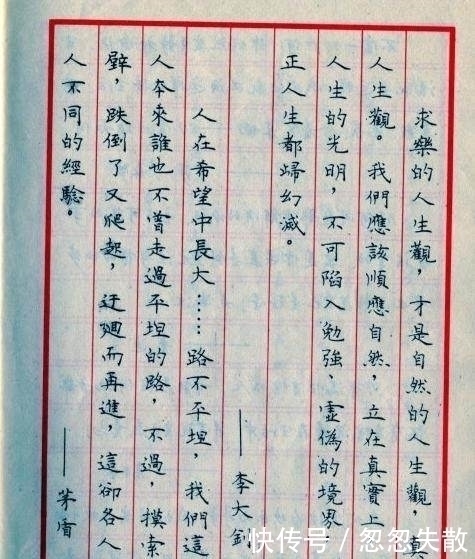 求樂的人生觀，才是自然的人生觀，真
人生觀。我們應該順應自然 立在真實上
人生的光明，不可陷入勉強、虛偽的境界，
正人生都歸幻滅。
——李大釗
人在希望中長大……路不平坦，我們這
人本來誰也不曾走過平坦的路，不過，摸索
壁，跌倒了又爬起，迂迴而再進，這卻各人
人不同的經驗。
——茅盾
快传号 / 忽忽失散